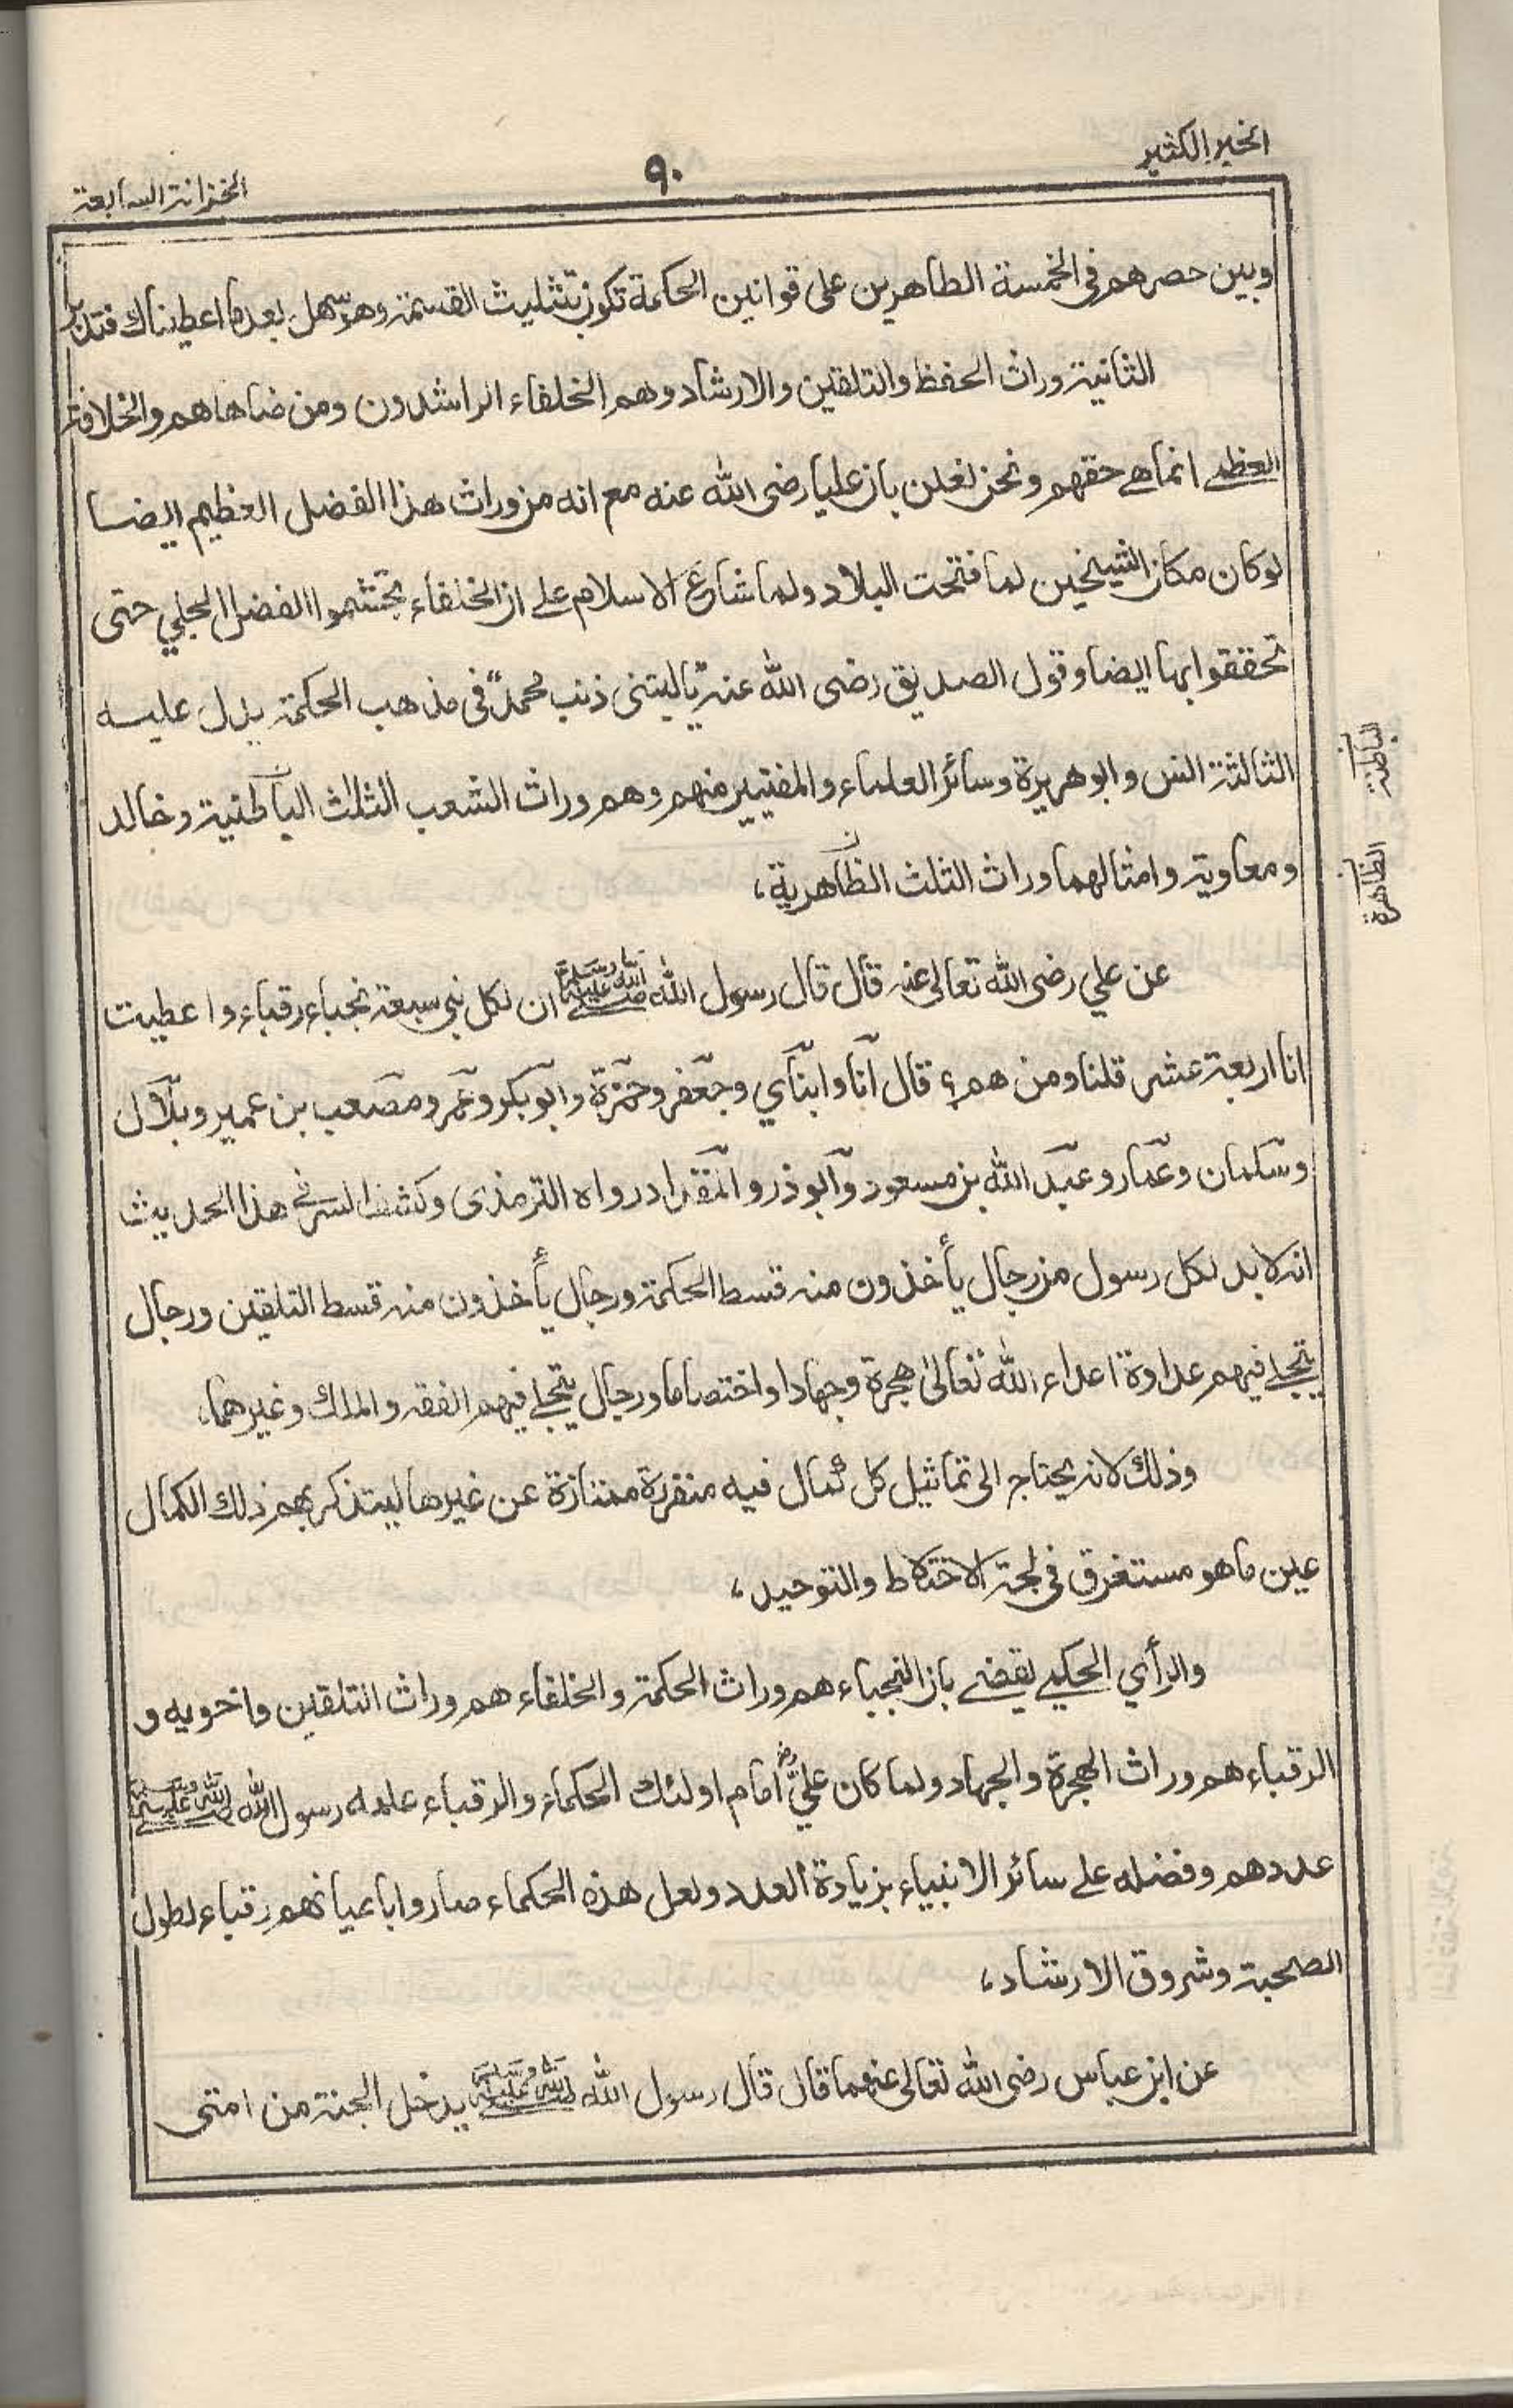 الخير الكثير
٩٠
الخزانة السابعة
وبين حصرهم في الخمسة الطاهرين على قوانين الحكمة تكون بتثليث القسمة وهو سهل بعد ما اعطيناك فتدبر
الثانية وراث الحفظ والتلقين والارشاد وهم الخلفاء الراشدون ومن ضاهاهم والخلافة
العظمى انما هي حقهم ونحن نعلن بان عليا رضى الله عنه مع انه من وراث هذا الفضل العظيم ايضا
لو كان مكان الشيخين لما فتحت البلاد ولما شاع الاسلام على ان الخلفاء تجشموا الفضل الجلي حتى
تحققوا بها ايضا وقول الصديق رضى الله عنه "ياليتنى ذنب محمد" فى مذهب الحكمة يدل عليه
الثالثة انس وابو هريرة وسائر العلماء والمفتيين منهم وهم وراث الشعب الثلاث الباطنية وخالد
ومعاوية وامثالهما وراث الثلث الظاهرية،
الباطنة
الظاهرة
عن علي رضى الله تعالى عنه قال قال رسول الله صلى الله عليه وسلم ان لكل نبى سبعة نجباء رقباء واعطيت
انا اربعة عشر قلنا ومن هم؟ قال انا وابناي وجعفر وحمزة وابو بكر وعمر ومصعب بن عمير وبلال
وسلمان وعمار وعبد الله بن مسعود وابو ذر والمقداد رواه الترمذى وكشف السر فى هذا الحديث
انه لا بد لكل رسول من رجال يأخذون منه قسط الحكمة ورجال يأخذون منه قسط التلقين ورجال
يتجلى فيهم عداوة اعداء الله تعالىٰ هجرة وجهادا واختصاما ورجال يتجلى فيهم الفقه والملك وغيرهما،
وذلك لانه يحتاج الى تماثيل كل كمال فيه منفرزة ممتازة عن غيرها ليتذكر بهم ذلك الكمال
عين ما هو مستغرق فى لجة الاختلاط والتوحيد،
والرأي الحكمي يقضى بان النجباء هم وراث الحكمة والخلفاء هم وراث التلقين واخويه و
الرقباء هم وراث الهجرة والجهاد ولما كان عليٌّ رض امام اولئك الحكماء والرقباء علمه رسول الله صلى الله عليه وسلم
عددهم وفضله على سائر الانبياء بزيادة العدد ولعل هذه الحكماء صاروا باعيانهم رقباء لطول
الصحبة وشروق الارشاد،
عن ابن عباس رضى الله تعالى عنهما قال قال رسول الله صلى الله عليه وسلم يدخل الجنة من امتى